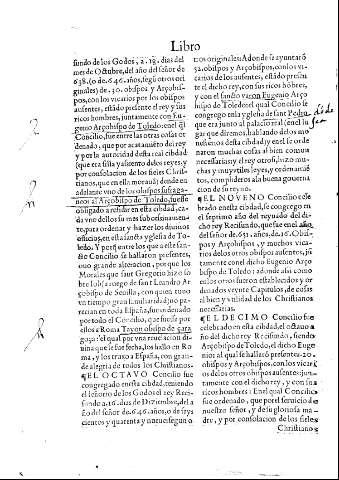 Libro
fundo de los Godos, a .18. dias del
mes de Octubre, del año del señor de
638. (o de .646. años, segũ otros ori
ginales) de .30. obispos y Arçobis-
pos, con los vicarios por los obispos
ausentes, estādo presente el rey y sus
ricos hombres, juntamente con Eu-
genio Arçobispo de Toledo: en el q̃l
Concilio, fue entre las otras cosas or
denado, que por acatamiẽto del rey
y por la autoridad desta real cibdad
que era silla y assiento de los reyes, y
por consolacion de los fieles Christi-
anos, que en ella morauā: donde en
adelante cada vno de los obispos sufraga-
neos al Arçobispo de Toledo, fuesse
obligado a residir en esta cibdad, ca
da vno dellos su mes
ra para ordenar y hazer los diuinos
officios, en esta sancta yglesia de To-
ledo. Y porq̃ entre los que a este san-
cto Concilio se hallaron presentes,
ouo grande alteracion, por que los
Morales que sant Gregorio hizo so
bre Iob, a ruego de sant Leandro Ar
çobispo de Seuilla, con quien tuuo
vn tiempo gran familiaridad: no pa-
recian en toda España, fue ordenado
por todo el Concilio, que fuesse por
ellos a Roma Tayon obispo de çara
goça: el qual por vna reuelacion di-
uina que le fue fecha, los hallo en Ro
ma, y los truxo a España, con gran-
de alegria de todos los Christianos.
¶ EL OCTAVO Concilio fue
congregado en esta cibdad, teniendo
el señorio de los Godos el rey Reci-
sundo a .16. dias de Diziembre, del a
ño del señor de .646. años, o de seys
cientos y quarenta y nueue segun o
tros originales: Adonde se ayuntarõ
52. obispos y Arçobispos, con los vica
rios de los ausentes, estādo presen-
te el dicho rey, con sus ricos hõbres,
y con el sancto varon Eugenio Arço
bispo de Toledo: el qual Concilio se
congrego en la yglesia de sant Pedro,
que era junto al palacio real (en el lu
gar que diremos, hablando del mo
nesterio desta cibdad) y en el se orde
naron muchas cosas al bien comun
necessarias: y el rey otrosi, hizo mu-
chas y muy vtiles leyes, y ordenami
entos, complideros a la buena gouerna
cion de su reyno.
¶ EL NOVENO Concilio cele
brado en esta cibdad, se congrego en
el septimo año del reynado del di-
cho rey Recisundo, que fue en el año
del señor de .651. años, de .16. Obis-
pos y Arçobispos, y muchos vica-
rios de los otros obispos ausentes, jũ
tamente con el dicho Eugenio Arço
bispo de Toledo: adonde assi como
en los otros fueron establecidos y or
denados reynte Capitulos, de cosas
al bien y vtilidad de los Christianos
necessarias.
¶ EL DECIMO Concilio fue
celebrado en esta cibdad, el octauo a
ño del dicho rey Recisundo, siendo
Arçobispo de Toledo, el dicho Euge
nio: al qual se hallarõ presentes .20.
obispos y Arçobispos, con los vicari
os de los otros obispos ausentes: jun
tamente con el dicho rey, y con sus
ricos hombres: En el qual Concilio
fue ordenado, que por el seruicio de
nuestro señor, y de su gloriosa ma-
dre, y por consolacion de los fieles
Christianos